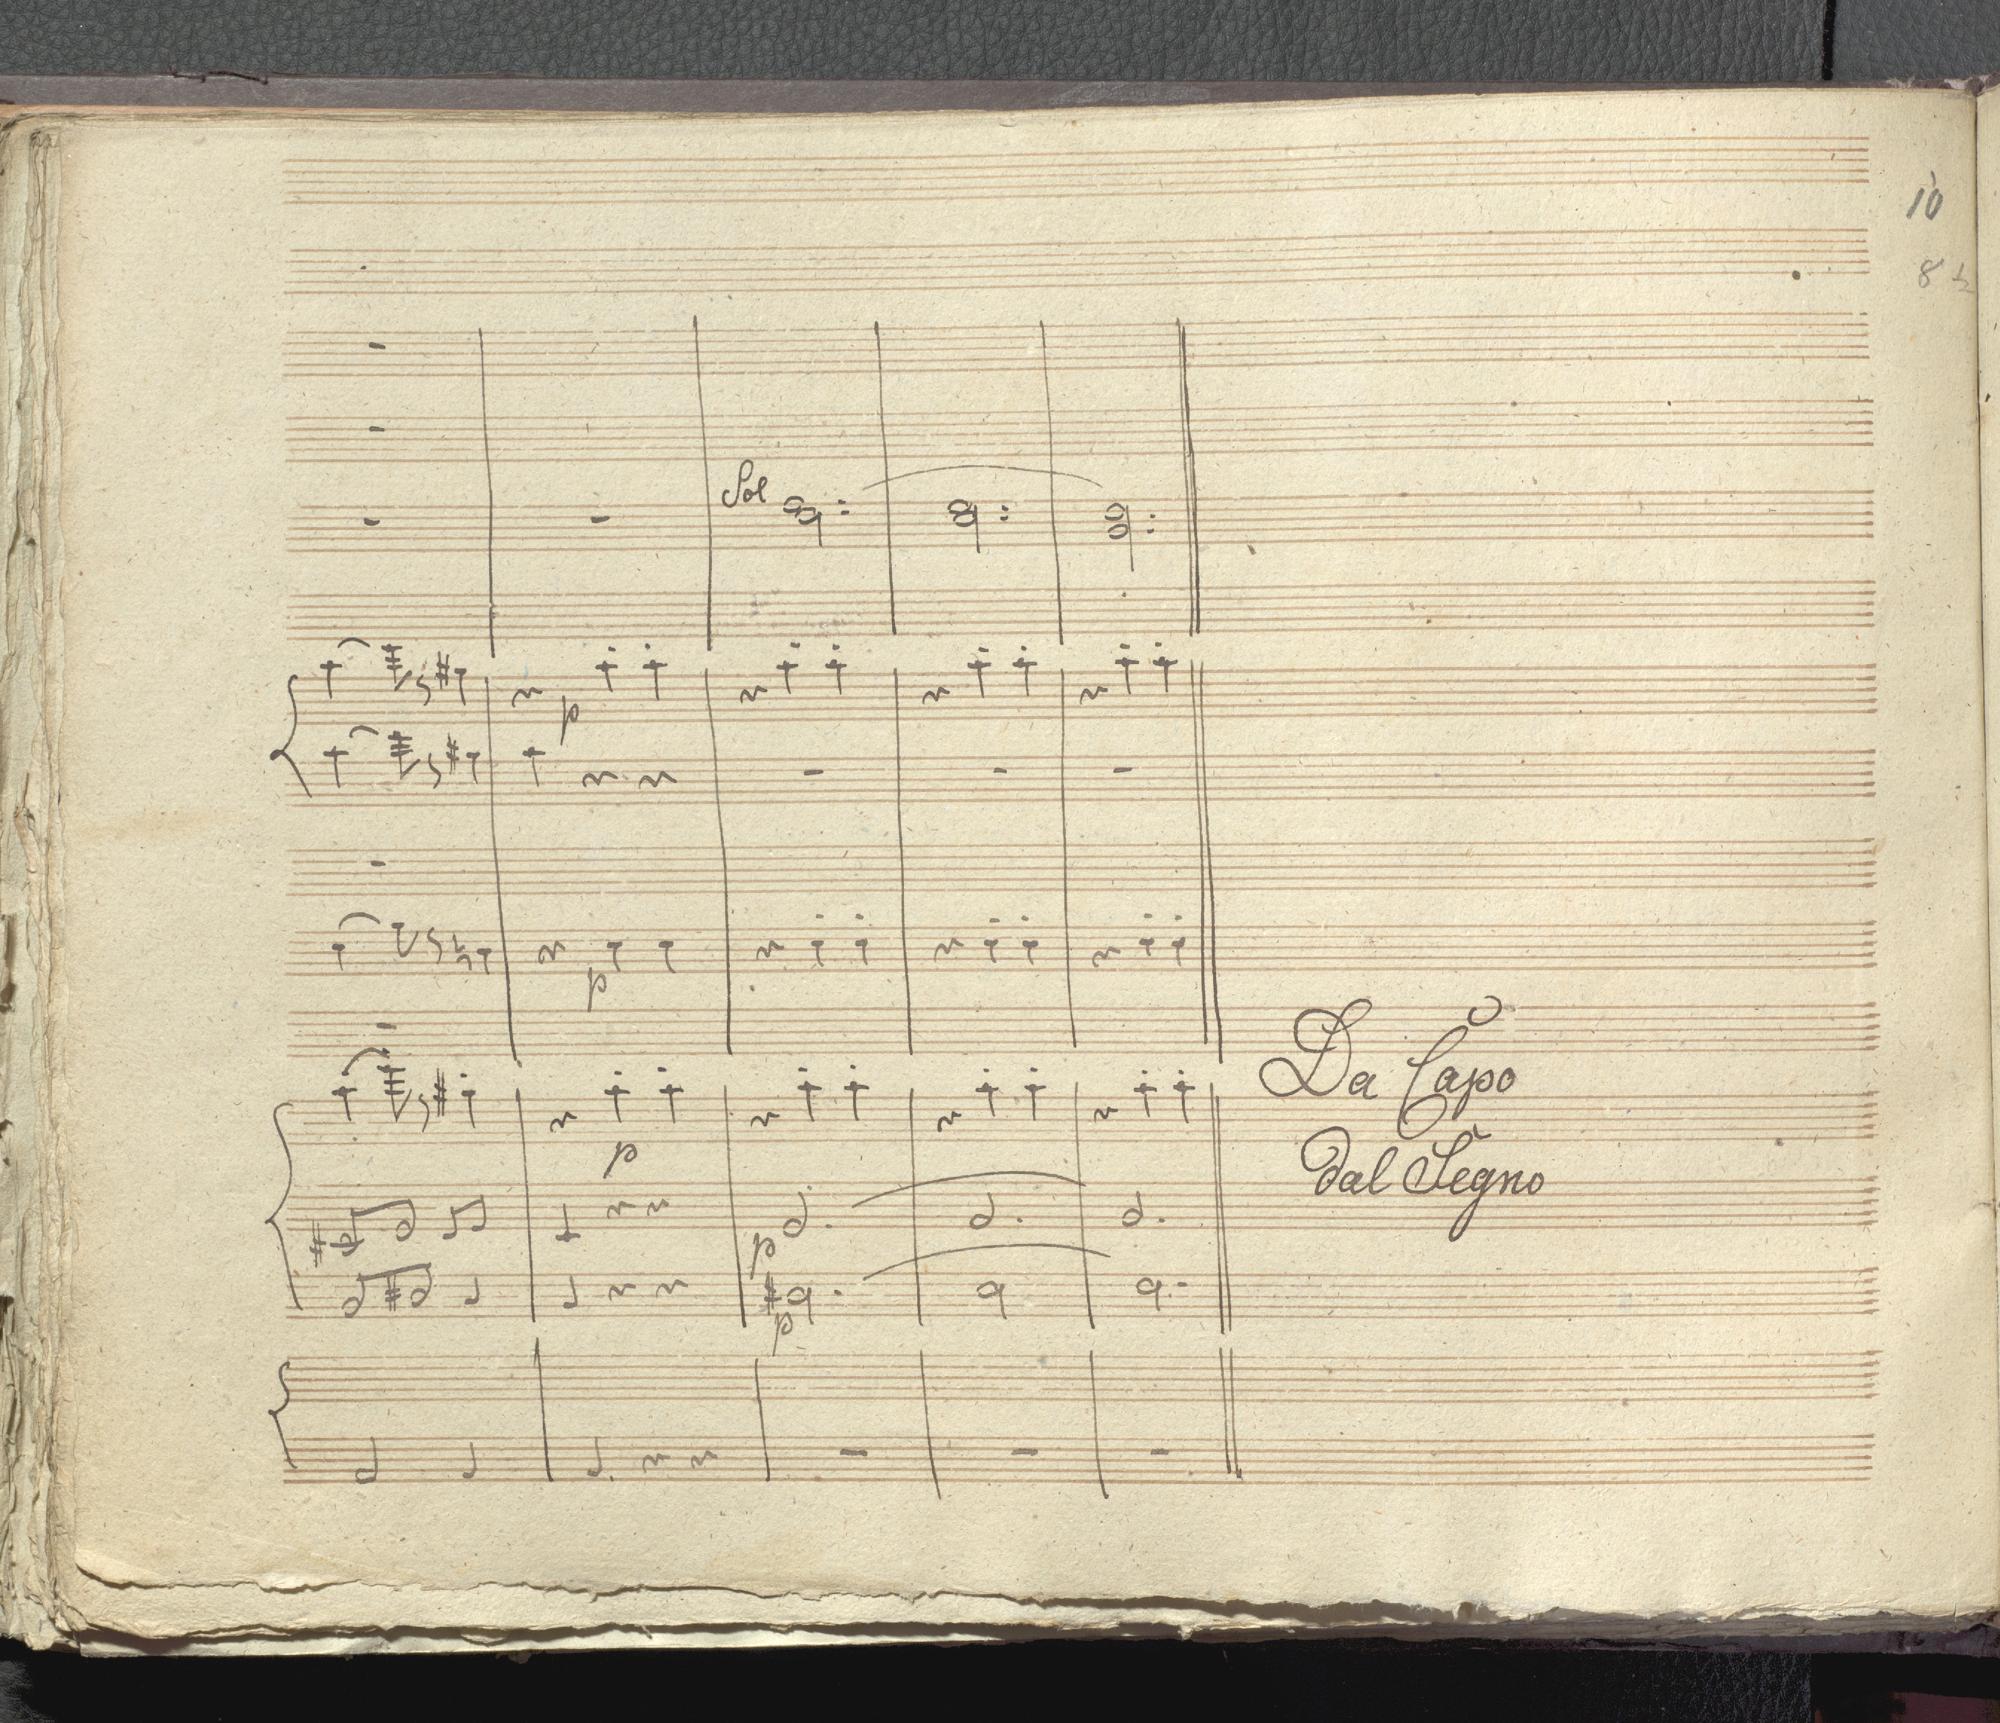 10
8 ½
Sol
p
p
p
p
p
Da Capo
dal Segno